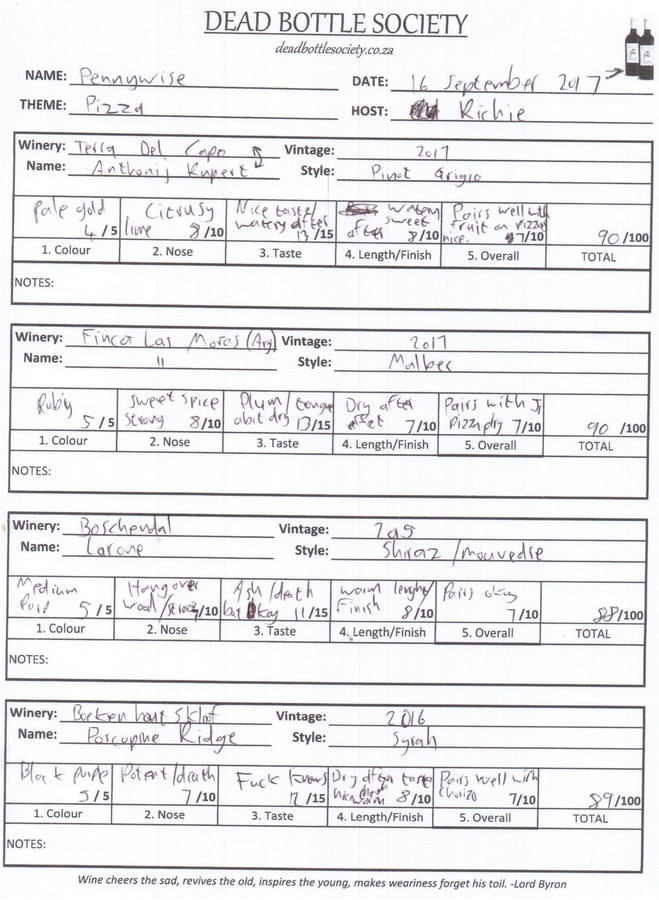 DEAD BOTTLE SOCIETY
deadbottlesociety.co.za
NAME: Pennywise DATE: 16 September 2017
THEME: Pizza HOST: Richie
Winery: Terra Del Capo Vintage: 2017
Name: Anthonij Rupert Style: Pinot Grigio
Pale gold 4 /5 Citrusy lime 8/10 Nice taste/ watery after 13/15 watery sweet after 8/10 Pairs well with fruit on pizza nice. 7/10 90/100
1. Colour 2. Nose 3. Taste 4. Length/Finish 5. Overall TOTAL
NOTES:
Winery: Finca Las Moras (Arg) Vintage: 2017
Name: 11 Style: Malbec
Ruby 5/5 Sweet spice strong 8/10 Plum/tongue abit dry 13/15 Dry after 7/10 Pairs with pizza dry 7/10 90 /100
1. Colour 2. Nose 3. Taste 4. Length/Finish 5. Overall TOTAL
NOTES:
Winery: Boschendal Vintage:
Name: Larone Style: Shiraz/mouvedre
Medium 5/5 Hangover wood/strong /10 Ash/death but okay 11/15 warm lenghy Finish 8/10 Pairs okay 7/10 88/100
1. Colour 2. Nose 3. Taste 4. Length/Finish 5. Overall TOTAL
NOTES:
Winery: Boeken hout skloof Vintage: 2016
Name: Porcupine Ridge Style: Syrah
Black purple 5/5 Potent/death 7/10 Fuck knows 12 /15 Dry after taste 8/10 Pairs well with Chorizo 7/10 89/100
1. Colour 2. Nose 3. Taste 4. Length/Finish 5. Overall TOTAL
NOTES:
Wine cheers the sad, revives the old, inspires the young, makes weariness forget his toil. -Lord Byron